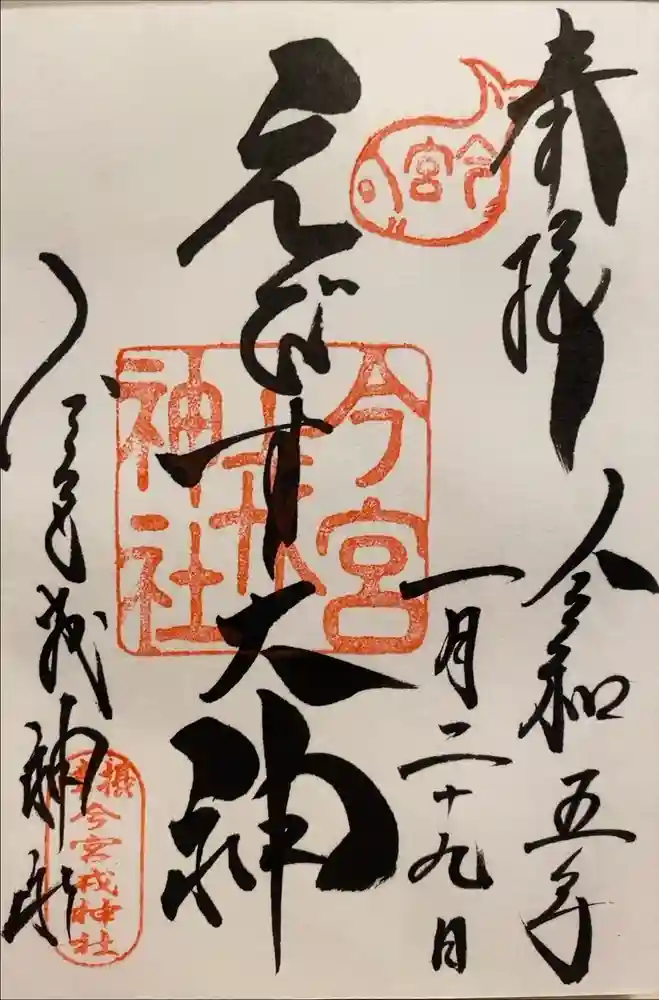 奉拝
令和五年
一月二十九日
今宮
えびす大神
今宮戎神社
今宮戎神社
今宮戎神社